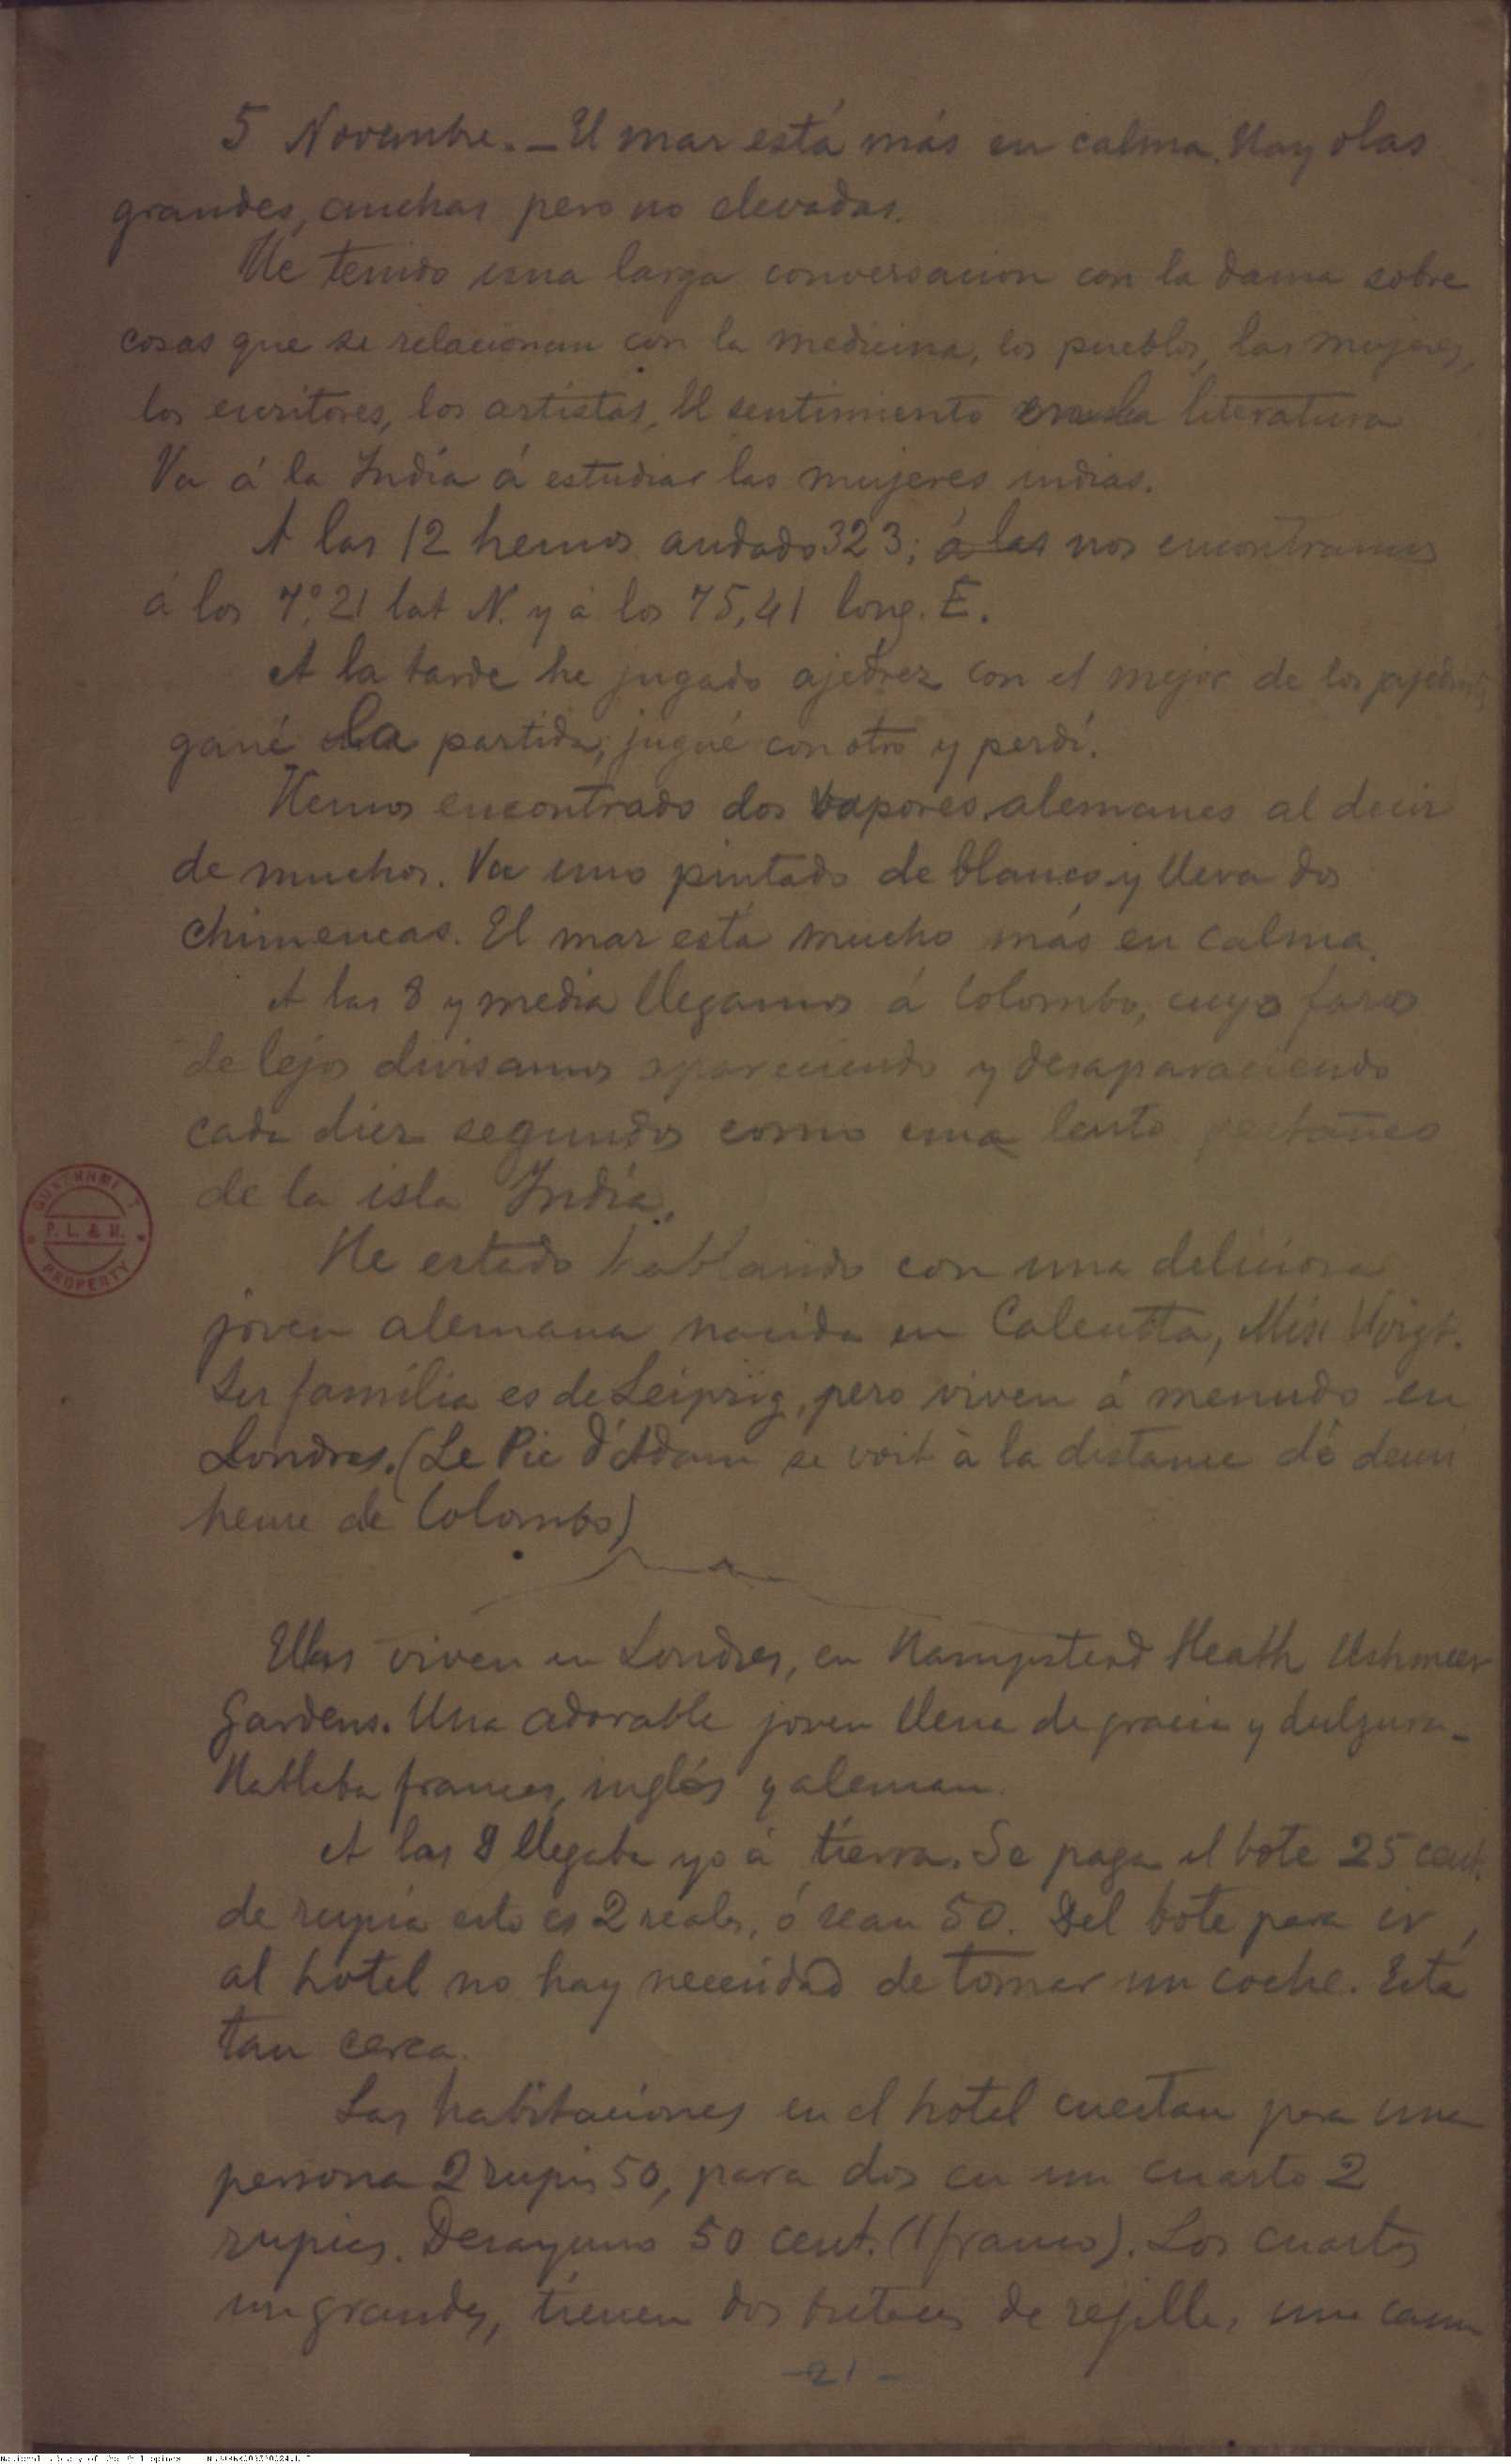 5 Novembre. – El mar está más en calma. Hay olas
grandes, anchas pero no elevadas.
He tenido una larga conversacion con la dama sobre
cosas que se relacionan con la medicina, los pueblos, las mujeres,
los escritores, los artistas, el sentimiento en la literatura
Va á la India á estudiar las mujeres indias.
A las 12 hemos andado 323; á las nos encontramos
á los 7º.21 lat N. y á los 75,41 long. E.
A la tarde he jugado ajedrez con el mejor de los
gané la partida, jugué con otro y perdí.
Hemos encontrado dos vapores, alemanes al decir
de muchos. Va uno pintado de blanco y lleva dos
chimeneas. El mar está mucho más en calma.
A las 8 y media llegamos á Colombo, cuyo faro
de lejos divisamos apareciendo y desapareciendo
cada diez segundos como una lento pestañeo
de la isla India.
He estado hablando con una deliciosa
joven alemana nacida en Calcutta, Miss Voigt.
Su familia es de Leipzig, pero viven á menudo en
Londres. (Le Pic d'Adam se voit à la distance de demi
heure de Colombo)
Ellas viven en Londres, en Hampstead Heath
Gardens. Una adorable joven llena de gracia y dulzura –
Hablaba frances, inglés y aleman.
A las 8 llegaba yo á tierra. Se paga el bote 25 cent.
de rupia esto es 2 reales, ó sean 50. Del bote para ir
al hotel no hay necesidad de tomar un coche. Está
tan cerca.
Las habitaciones en el hotel cuestan para una
persona 2 rupis 50, para dos en un cuarto 2
rupies. Desayuno 50 cent. (1 franco). Los cuartos
son grandes, tienen dos butacas de rejilla, una cama
-21-
GOVERNMENT
P. L. & M.
PROPERTY